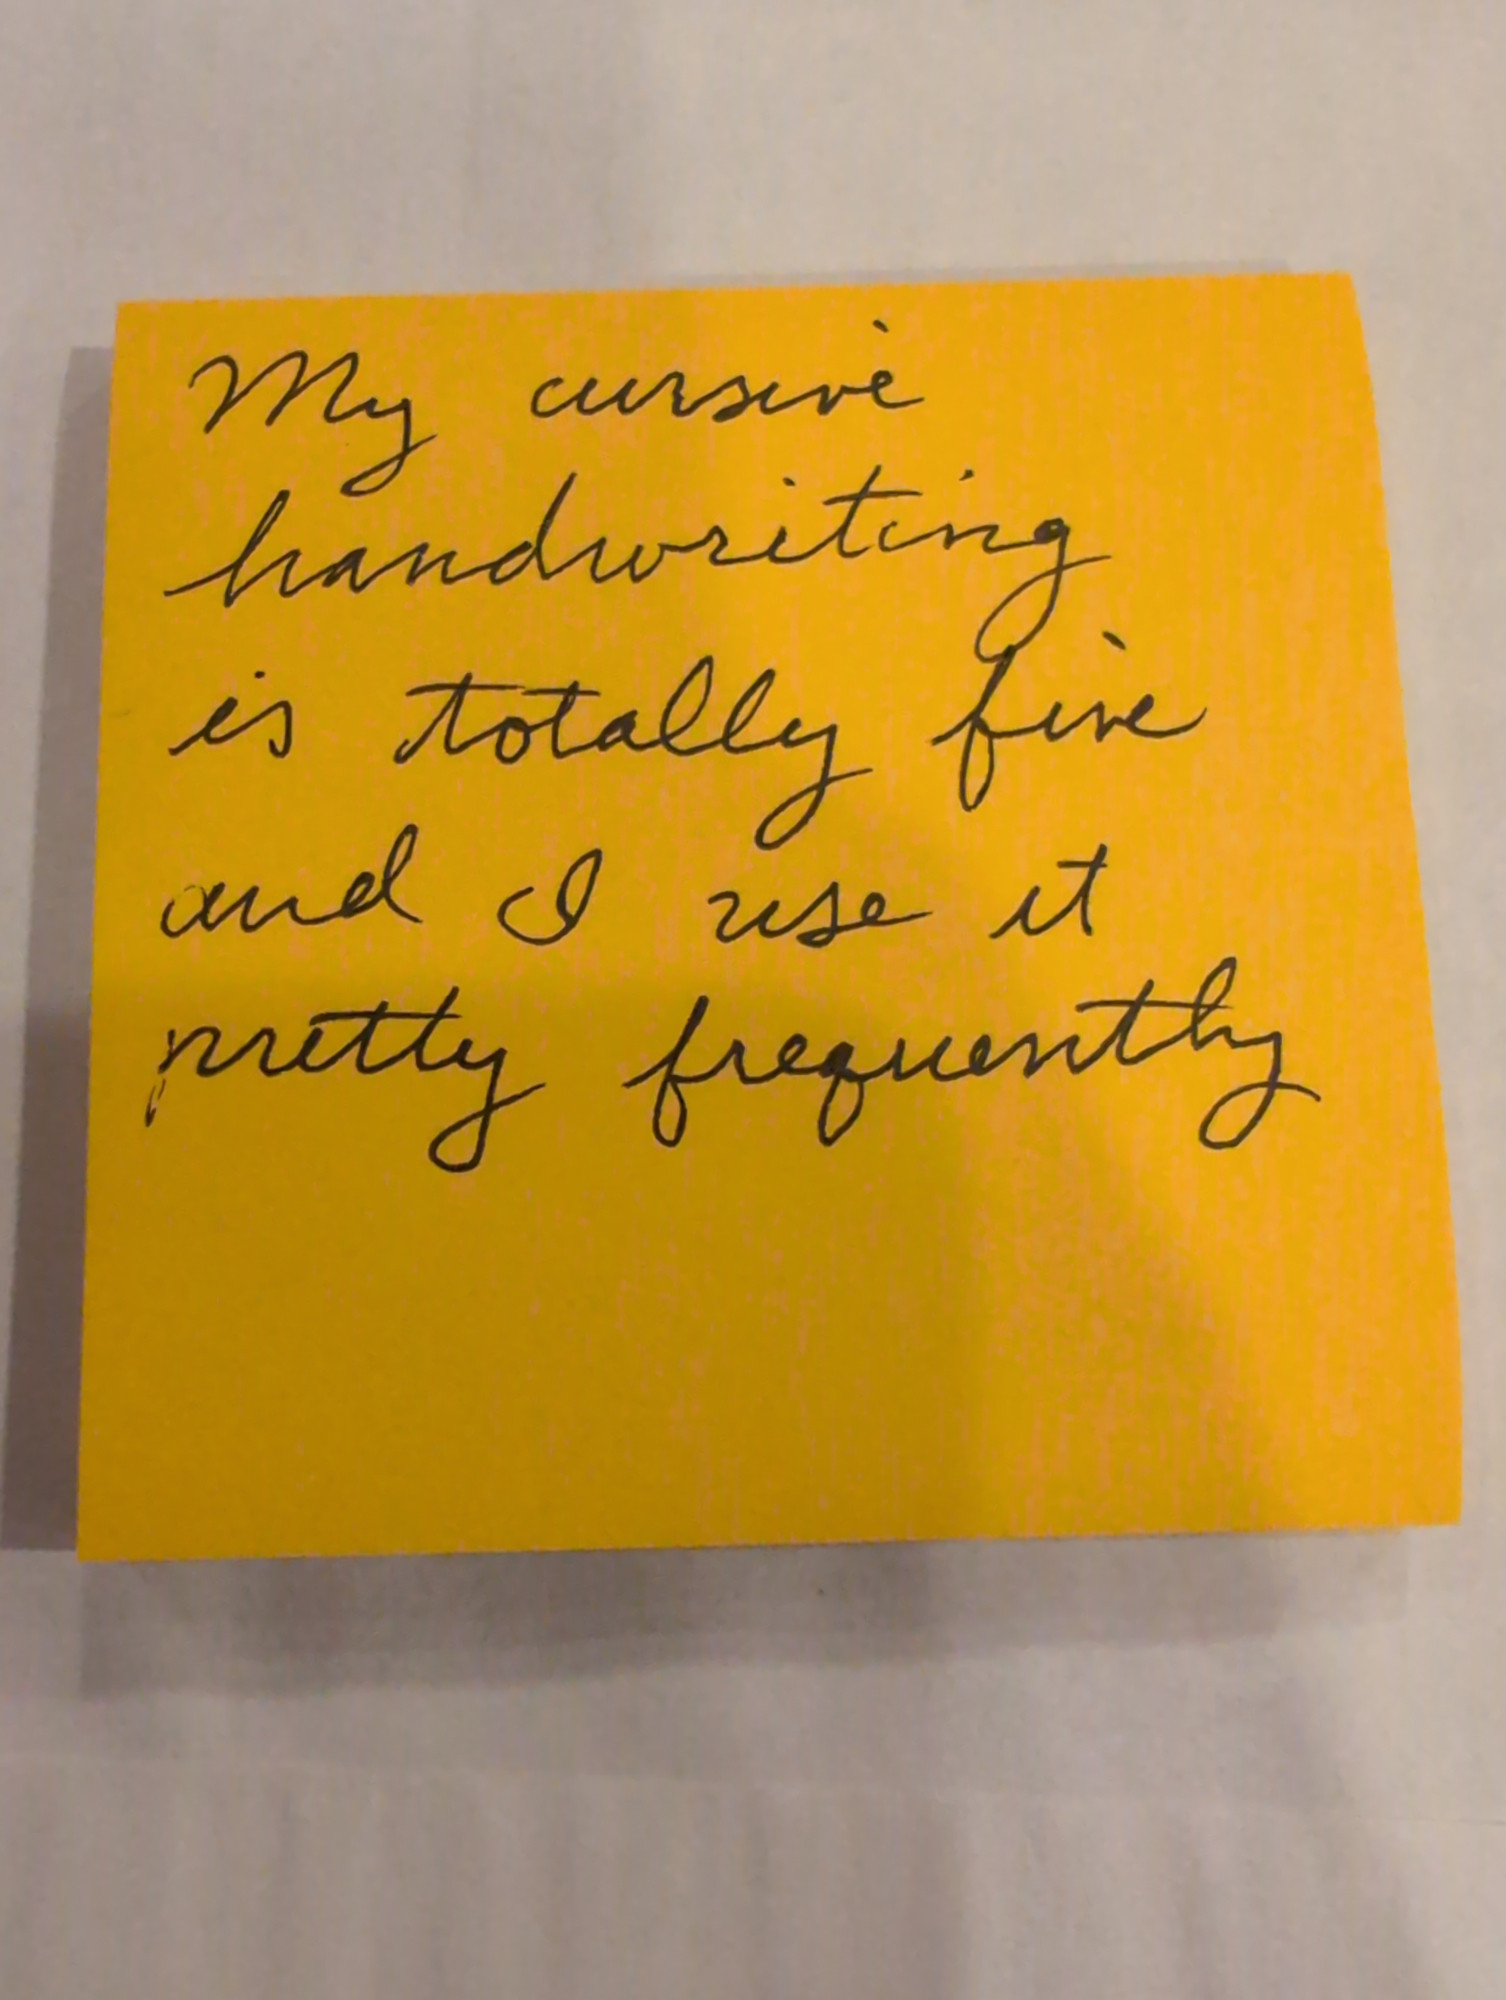 My cursive
handwriting
is totally fine
and I use it
pretty frequently